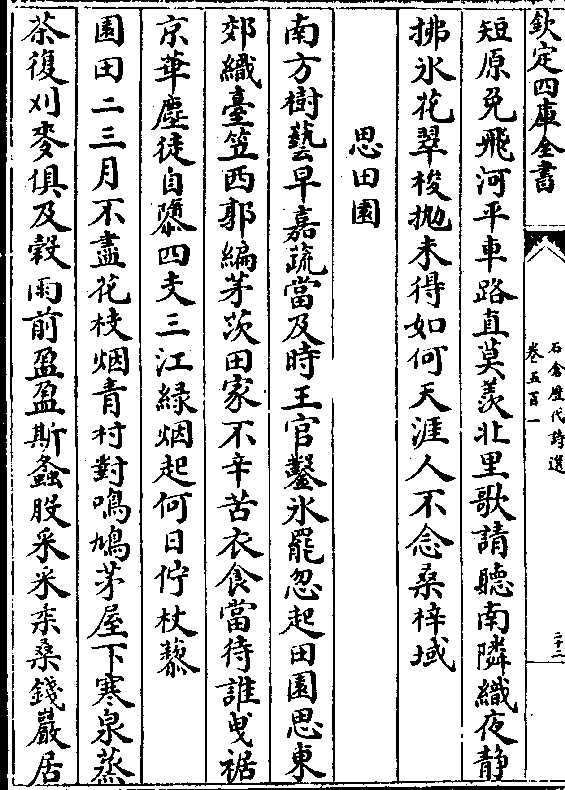 欽定四庫全書
石倉歷代詩選
卷五百一
二十二
短原兔飛河平車路直莫羡北里歌請聽南隣織夜静
拂氷花翠梭抛未得如何天涯人不念桑梓域
思田園
南方樹藝早嘉蔬當及時王官鑿氷罷忽起田園思東
郊織臺笠西郭編茅茨田家不辛苦衣食當待誰曵裾
京華塵徒自隳四支三江緑烟起何日佇杖藜
園田二三月不盡花枝烟青村對鳴鳩茅屋下寒泉蒸
茶復刈麥俱及穀雨前盈盈斯螽股采采柔桑錢巖居